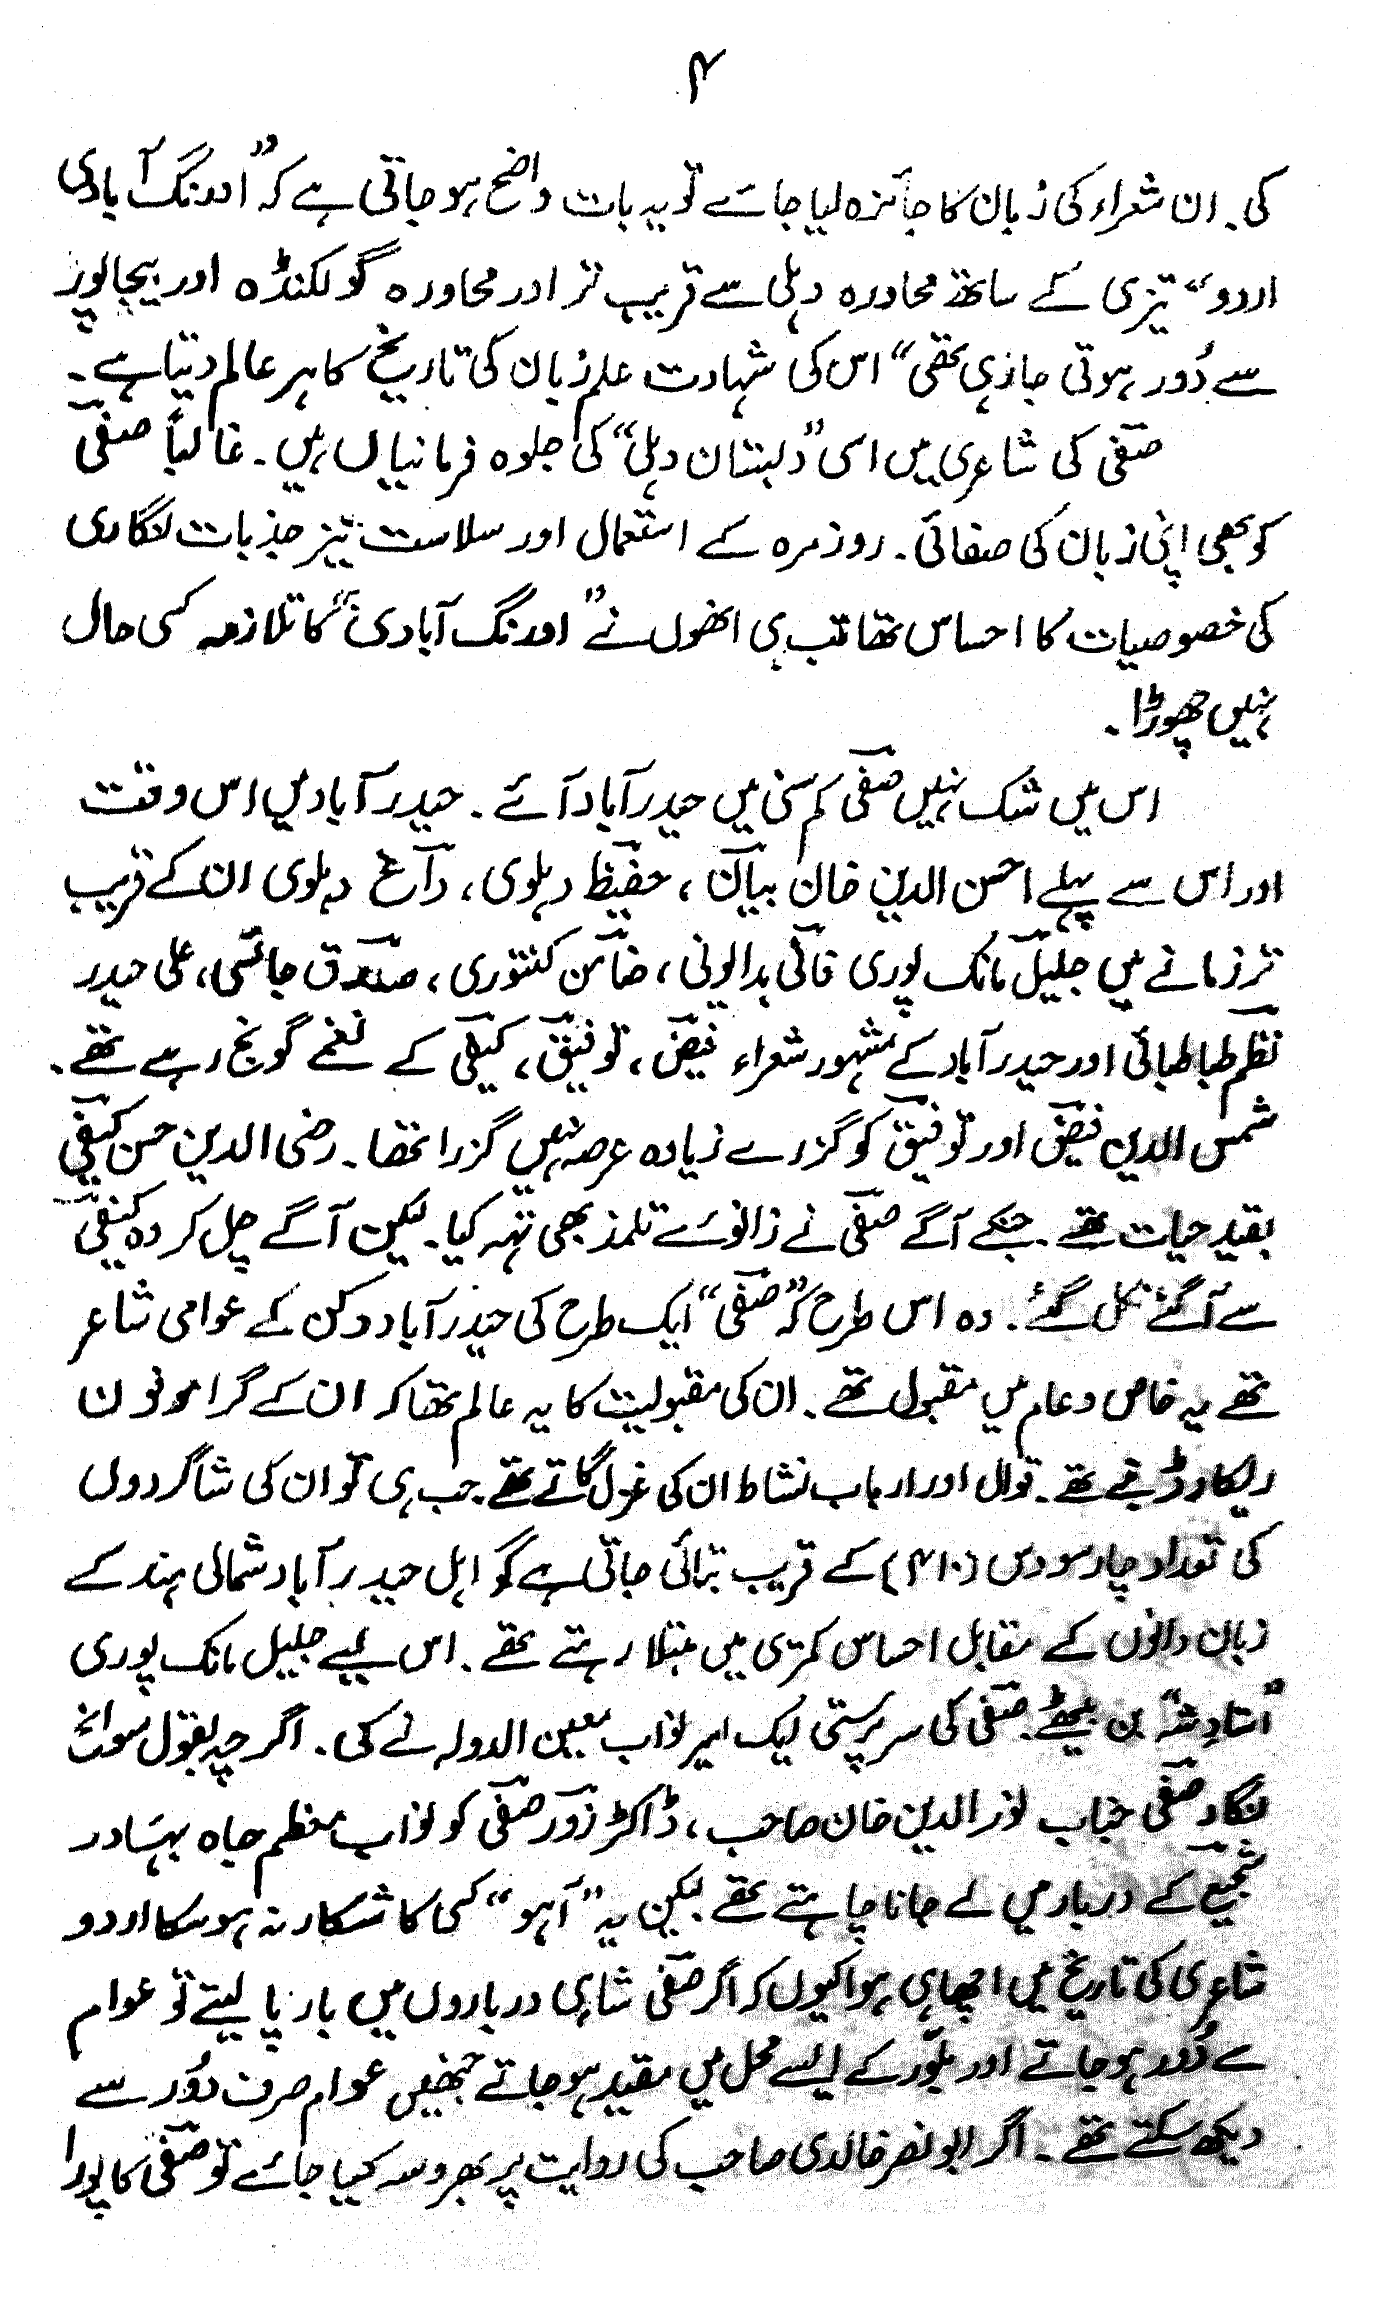 ۴
کی۔ ان شعراء کی زبان کا جائزہ لیا جائے تو یہ بات واضح ہو جاتی ہے کہ ”اورنگ آبادی
اردو“ تیزی کے ساتھ محاورہ دہلی سے قریب تر اور محاورہ گولکنڈہ اور بیجاپور
سے دُور ہوتی جارہی تھی“ اس کی شہادت علم زبان کی تاریخ کا ہر عالم دیتا ہے۔
صفی کی شاعری میں اسی ”دبستان دہلی“ کی جلوہ فرمائیاں ہیں۔ غالباً صفی
کو بھی اپنی زبان کی صفائی۔ روزمرہ کے استعمال اور سلاست نیز جذبات نگاری
کی خصوصیات کا احساس تھا تب ہی انھوں نے ”اورنگ آبادی“ کا تلازمہ کسی حال
نہیں چھوڑا۔
اس میں شک نہیں صفی کم سنی میں حیدرآباد آئے۔ حیدرآباد میں اس وقت
اور اس سے پہلے احسن الدین خان بیان، حفیظ دہلوی، داغ دہلوی ان کے قریب
تر زمانے میں جلیل مانک پوری فانی بدایونی، ضامن کنتوری، صدق جائسی، علی حیدر
نظم طباطبائی اور حیدرآباد کے مشہور شعراء فیض، توفیق، کیفی کے نغمے گونج رہے تھے۔
شمس الدین فیض اور توفیق کو گزرے زیادہ عرصہ نہیں گزرا تھا۔ رضی الدین حسن کیفی
بقید حیات تھے۔ جنکے آگے صفی نے زانوئے تلمذ بھی تہہ کیا۔ لیکن آگے چل کر وہ کیفی
سے آگے نکل گئے۔ وہ اس طرح کہ ”صفی“ ایک طرح کی حیدرآباد دکن کے عوامی شاعر
تھے یہ خاص و عام میں مقبول تھے۔ ان کی مقبولیت کا یہ عالم تھا کہ ان کے گراموفون
ریکارڈ بنے تھے۔ قوال اور ارباب نشاط ان کی غزل گاتے تھے۔ جب ہی تو ان کی شاگردوں
کی تعداد چار سو دس (۴۱۰) کے قریب بتائی جاتی ہے گو اہل حیدرآباد شمالی ہند کے
زبان دانوں کے مقابل احساس کمتری میں مبتلا رہتے تھے۔ اس لیے جلیل مانک پوری
”استادِ شہ“ بن بیٹھے۔ صفی کی سرپرستی ایک امیر نواب معین الدولہ نے کی۔ اگرچہ بقول سوانح
نگار صفی جناب نور الدین خان صاحب، ڈاکٹر زور صفی کو نواب معظم جاہ بہادر
شجیع کے دربار میں لے جانا چاہتے تھے لیکن یہ ”آہو“ کسی کا شکار نہ ہوسکا اردو
شاعری کی تاریخ میں اچھا ہی ہوا کیوں کہ اگر صفی شاہی درباروں میں بار پا لیتے تو عوام
سے دُور ہو جاتے اور بلّور کے ایسے محل میں مقید ہو جاتے جنھیں عوام صرف دُور سے
دیکھ سکتے تھے۔ اگر ابو نصر خالدی صاحب کی روایت پر بھروسہ کیا جائے تو صفی کا پورا